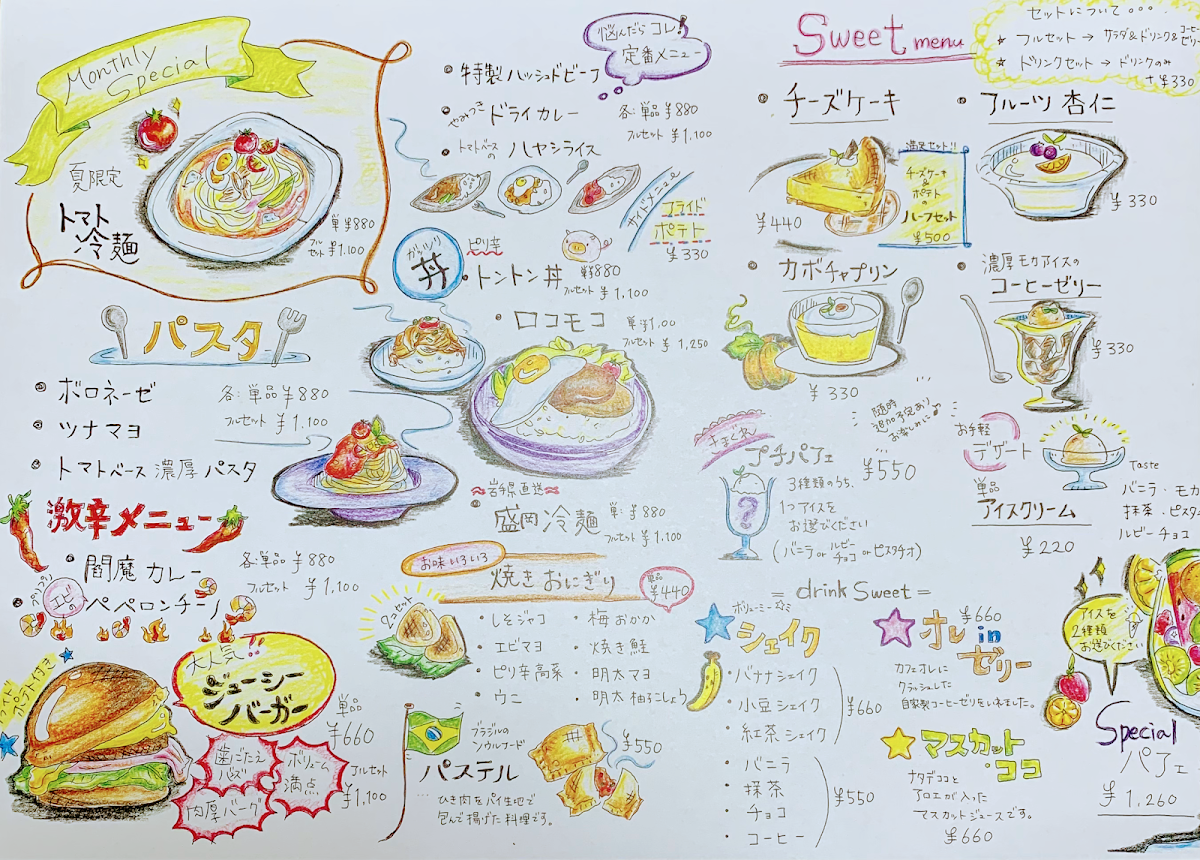 Monthly
Special
夏限定
トマト
冷麺
単 ¥880
フルセット ¥1,100
悩んだらコレ!
定番メニュー
・特製ハッシュドビーフ
・やみつき ドライカレー
・トマトベースの ハヤシライス
各:単品 ¥880
フルセット ¥1,100
サイドメニュー
フライド
ポテト
¥330
がっつり
丼
ピリ辛
・トントン丼
¥880
フルセット ¥1,100
・ロコモコ
フルセット ¥1,250
パスタ
・ボロネーゼ
・ツナマヨ
・トマトベース 濃厚 パスタ
各:単品 ¥880
フルセット ¥1,100
激辛メニュー
・閻魔 カレー
・プリプリ エビの ペペロンチーノ
各:単品 ¥880
フルセット ¥1,100
岩手県直送
・盛岡冷麺
単:¥880
フルセット ¥1,100
お味いろいろ
焼きおにぎり
単品
¥440
2コセット
・しそジャコ
・エビマヨ
・ピリ辛高菜
・ウニ
・梅おかか
・焼き鮭
・明太マヨ
・明太柚子こしょう
ポテト付き
大人気!!
ジューシー
バーガー
単品
¥660
フルセット
¥1,100
歯ごたえ
バツ
ボリューム
満点
肉厚バーグ
ブラジルの
ソウルフード
パステル
¥550
ひき肉をパイ生地で
包んで揚げた料理です。
Sweet menu
セットについて。。。
★ フルセット → サラダ&ドリンク&コーヒーゼリー
★ ドリンクセット → ドリンクのみ
+¥330
・チーズケーキ
¥440
満足セット!!
チーズケーキ
&
ポテト
の
ハーフセット
¥500
・フルーツ 杏仁
¥330
・カボチャプリン
¥330
・濃厚モカアイスの
コーヒーゼリー
¥330
随時
追加予定あり
お楽しみに♪
きまぐれ
プチパフェ
¥550
3種類のうち、
1つアイスを
お選びください
(バニラ or ルビーチョコ or ピスタチオ)
お手軽
デザート
単品
アイスクリーム
¥220
Taste
バニラ・モカ
抹茶・ピスタ
ルビーチョコ
= drink Sweet =
ボリューミー
シェイク
・バナナシェイク
・小豆シェイク
・紅茶シェイク
¥660
・バニラ
・抹茶
・チョコ
・コーヒー
¥550
オレ in
ゼリー
¥660
カフェオレに
クラッシュした
自家製コーヒーゼリをいれました。
マスカット
・ココ
ナタデココと
アロエが入った
マスカットジュースです。
¥660
アイスを
2種類
お選びください
Special
パフェ
¥1,260